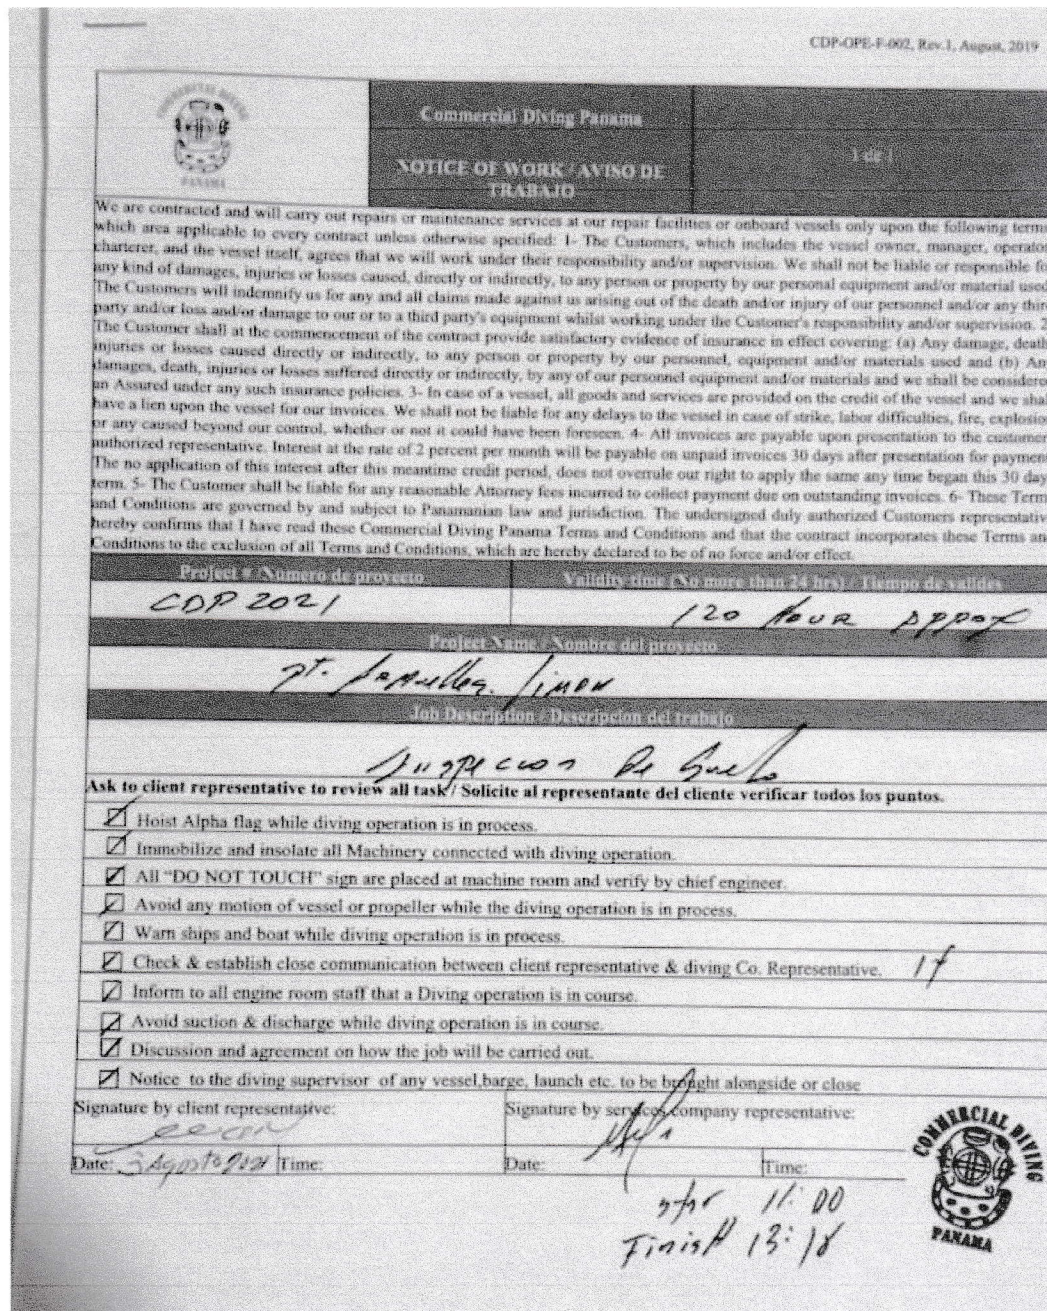 CDP-OPE-F-002, Rev.1, August, 2019
COMMERCIAL DIVING
PANAMA
Commercial Diving Panama
NOTICE OF WORK / AVISO DE
TRABAJO
1 de 1
We are contracted and will carry out repairs or maintenance services at our repair facilities or onboard vessels only upon the following terms
which area applicable to every contract unless otherwise specified: 1- The Customers, which includes the vessel owner, manager, operator
charterer, and the vessel itself, agrees that we will work under their responsibility and/or supervision. We shall not be liable or responsible fo
any kind of damages, injuries or losses caused, directly or indirectly, to any person or property by our personal equipment and/or material used
The Customers will indemnify us for any and all claims made against us arising out of the death and/or injury of our personnel and/or any third
party and/or loss and/or damage to our or to a third party's equipment whilst working under the Customer's responsibility and/or supervision. 2
The Customer shall at the commencement of the contract provide satisfactory evidence of insurance in effect covering: (a) Any damage, death
injuries or losses caused directly or indirectly, to any person or property by our personnel, equipment and/or materials used and (b) An
damages, death, injuries or losses suffered directly or indirectly, by any of our personnel equipment and/or materials and we shall be considere
an Assured under any such insurance policies. 3- In case of a vessel, all goods and services are provided on the credit of the vessel and we shal
have a lien upon the vessel for our invoices. We shall not be liable for any delays to the vessel in case of strike, labor difficulties, fire, explosio
or any caused beyond our control, whether or not it could have been foreseen. 4- All invoices are payable upon presentation to the customer
authorized representative. Interest at the rate of 2 percent per month will be payable on unpaid invoices 30 days after presentation for paymen
The no application of this interest after this meantime credit period, does not overrule our right to apply the same any time began this 30 day
term. 5- The Customer shall be liable for any reasonable Attorney fees incurred to collect payment due on outstanding invoices. 6- These Term
and Conditions are governed by and subject to Panamanian law and jurisdiction. The undersigned duly authorized Customers representativ
hereby confirms that I have read these Commercial Diving Panama Terms and Conditions and that the contract incorporates these Terms an
Conditions to the exclusion of all Terms and Conditions, which are hereby declared to be of no force and/or effect.
Project # / Numero de proyecto
Validity time (No more than 24 hrs) / Tiempo de valides
CDP 2021
120 HOUR APPOX
Project Name / Nombre del proyecto
Job Description / Descripcion del trabajo
Inspeccion De
Ask to client representative to review all task / Solicite al representante del cliente verificar todos los puntos.
Hoist Alpha flag while diving operation is in process.
Immobilize and insolate all Machinery connected with diving operation.
All "DO NOT TOUCH" sign are placed at machine room and verify by chief engineer.
Avoid any motion of vessel or propeller while the diving operation is in process.
Warn ships and boat while diving operation is in process.
Check & establish close communication between client representative & diving Co. Representative.
Inform to all engine room staff that a Diving operation is in course.
Avoid suction & discharge while diving operation is in course.
Discussion and agreement on how the job will be carried out.
Notice to the diving supervisor of any vessel,barge, launch etc. to be brought alongside or close
Signature by client representative:
Signature by services company representative:
Date: 3 Agosto 2021 Time:
Date:
Time:
11:00
Finish 13:18
COMMERCIAL DIVING
PANAMA